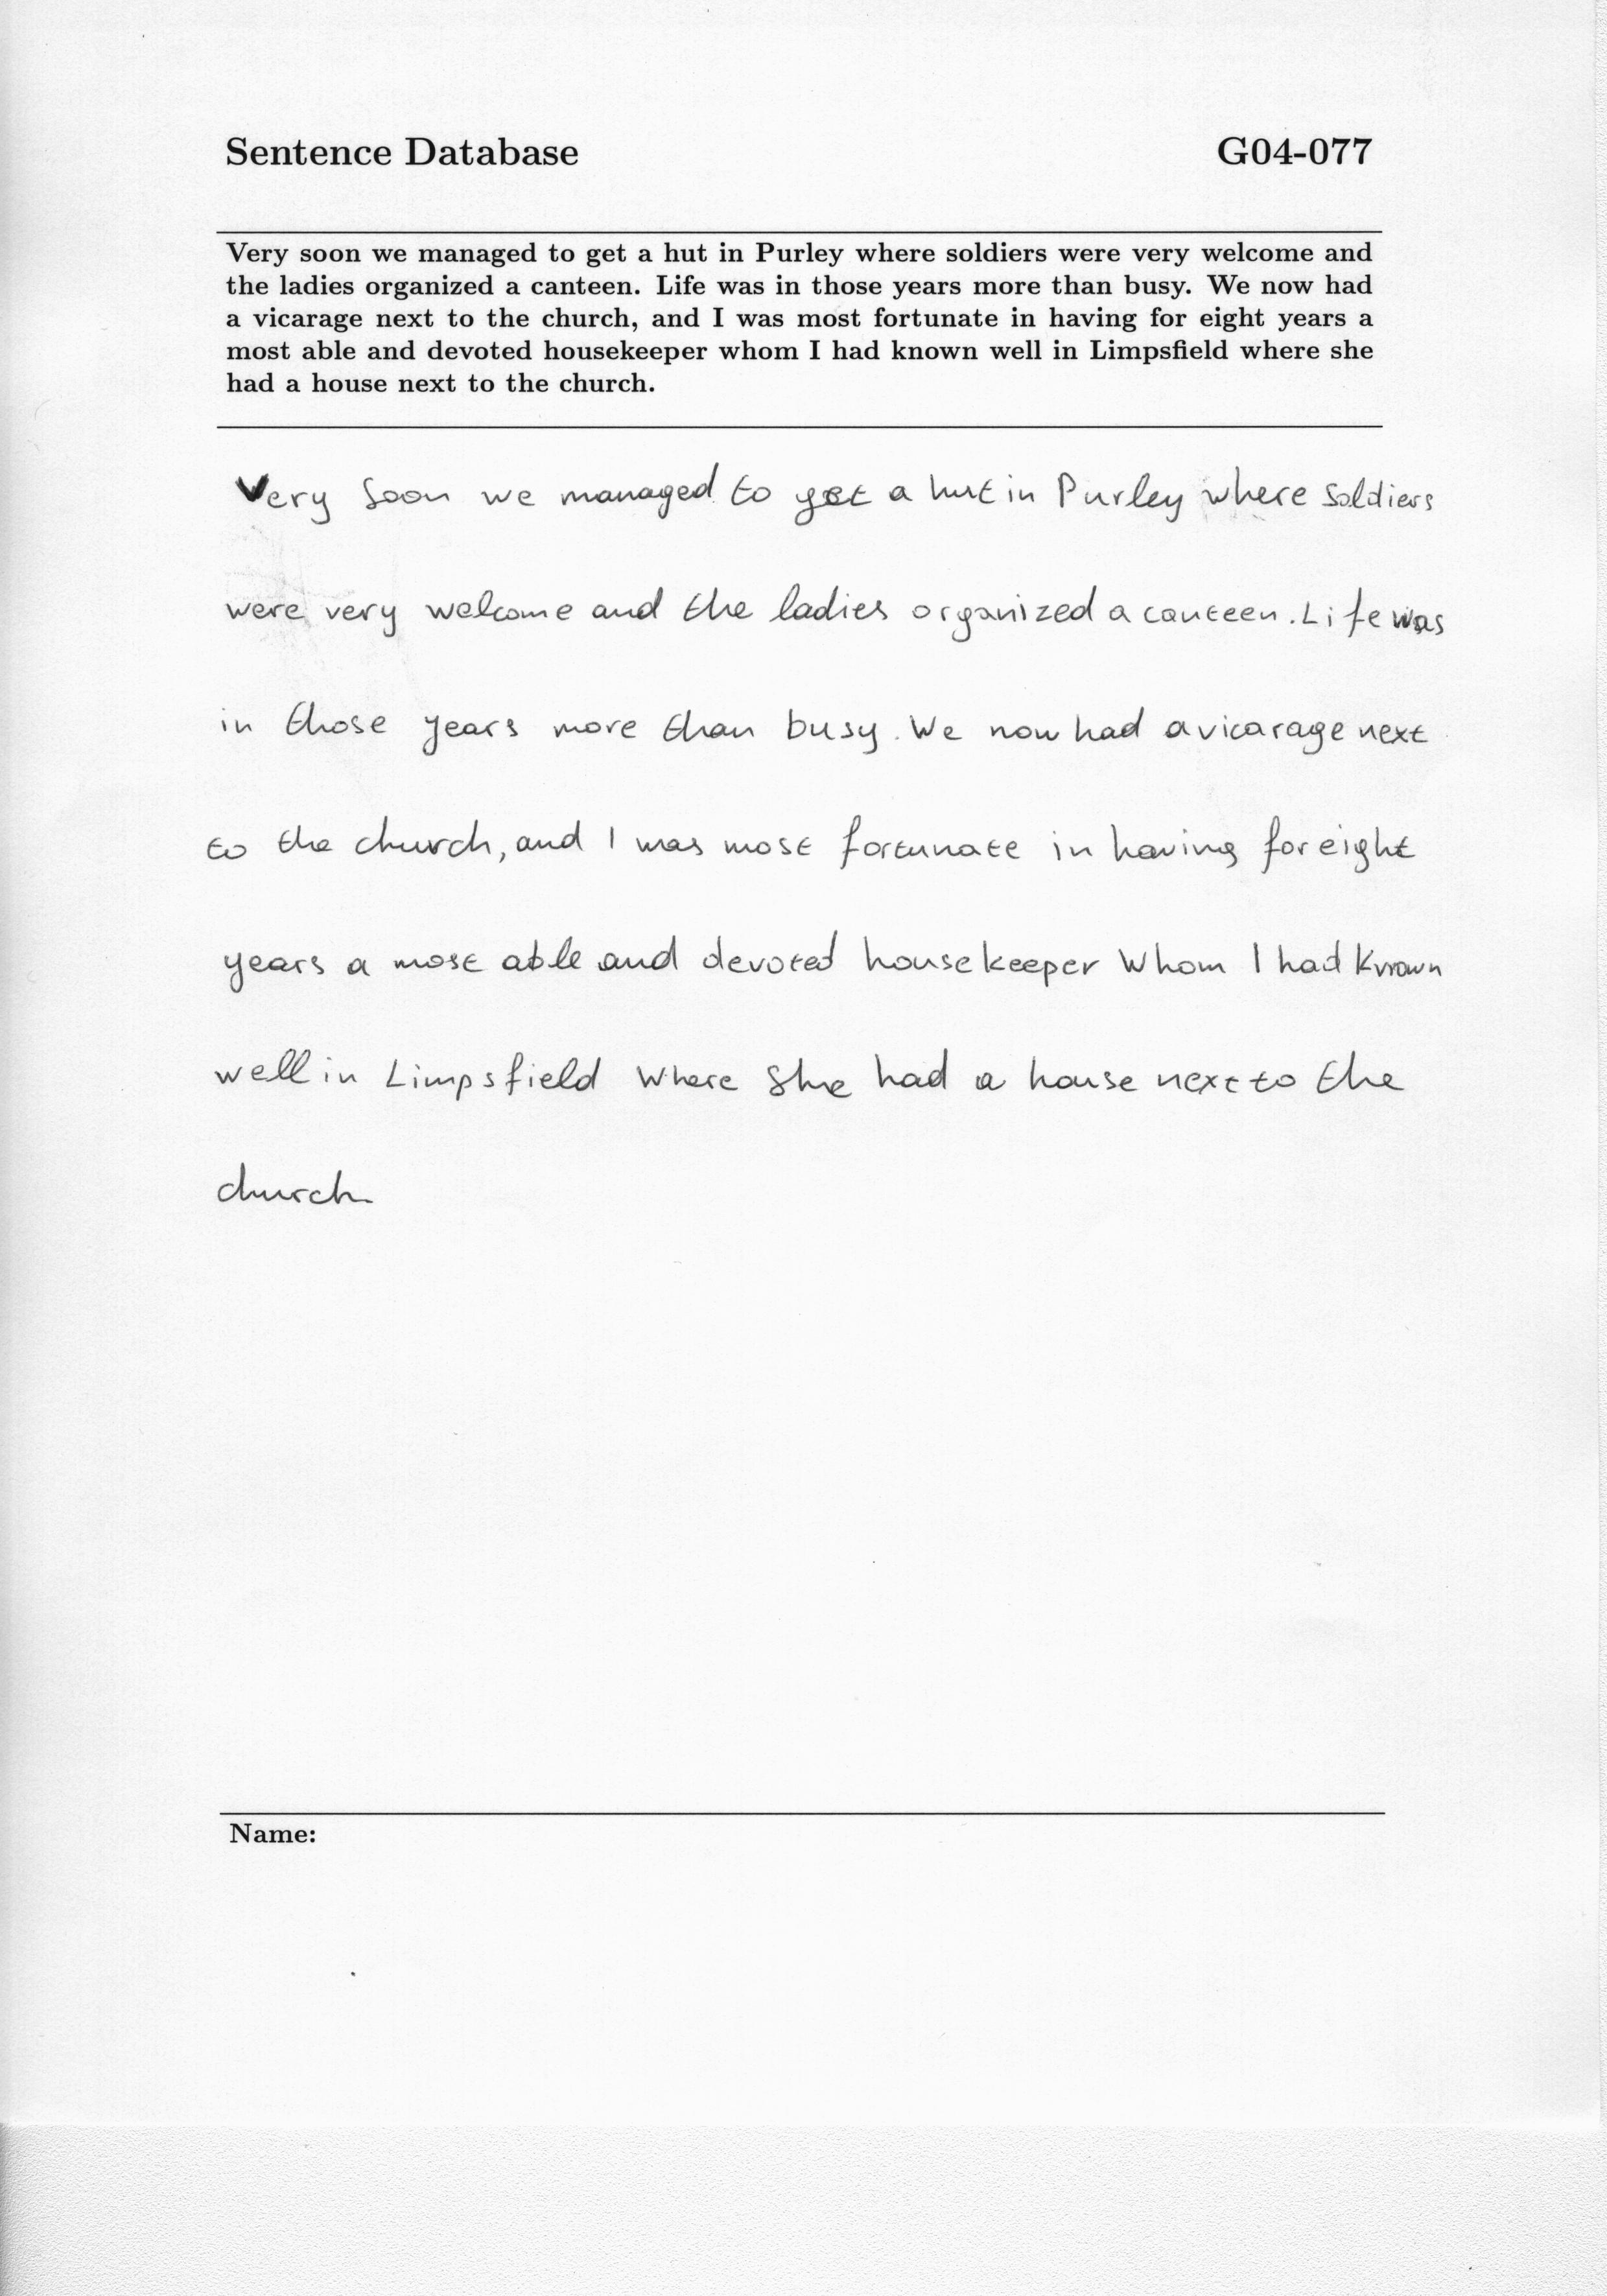 Sentence Database G04-077
Very soon we managed to get a hut in Purley where soldiers were very welcome and
the ladies organized a canteen. Life was in those years more than busy. We now had
a vicarage next to the church, and I was most fortunate in having for eight years a
most able and devoted housekeeper whom I had known well in Limpsfield where she
had a house next to the church.
Very soon we managed to get a hut in Purley where soldiers
were very welcome and the ladies organized a canteen. Life was
in those years more than busy. We now had a vicarage next
to the church, and I was most fortunate in having for eight
years a most able and devoted housekeeper whom I had known
well in Limpsfield where she had a house next to the
church.
Name: